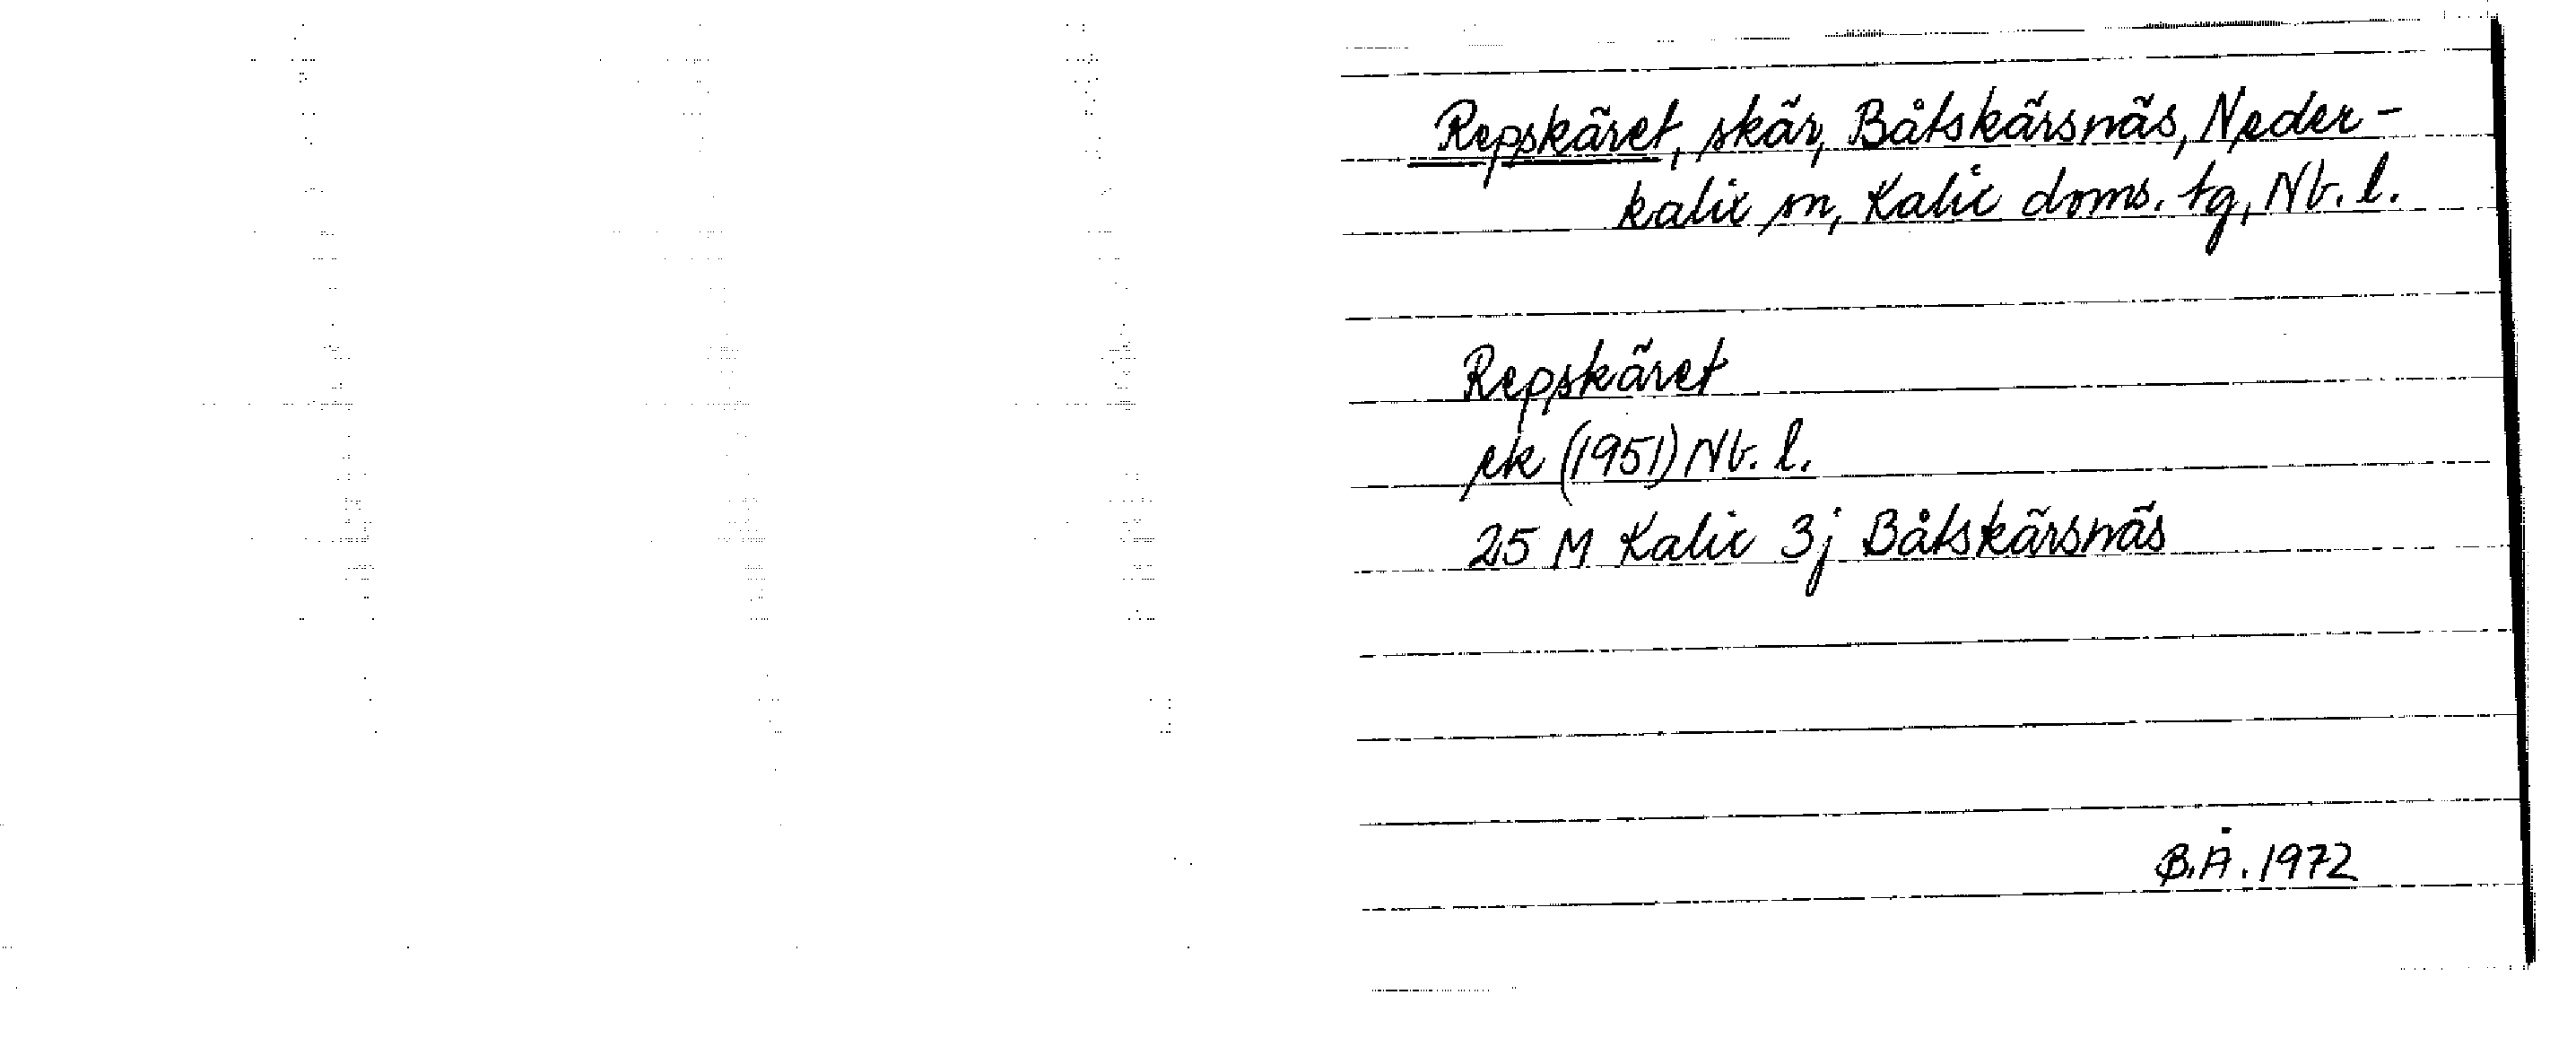 Repskäret, skär, Båtskärsnäs, Neder-
kalix sn, Kalix doms. tg, Nb. l.
Repskäret
ek (1951) Nb. l.
25 M Kalix 3j Båtskärsnäs
B.Å. 1972